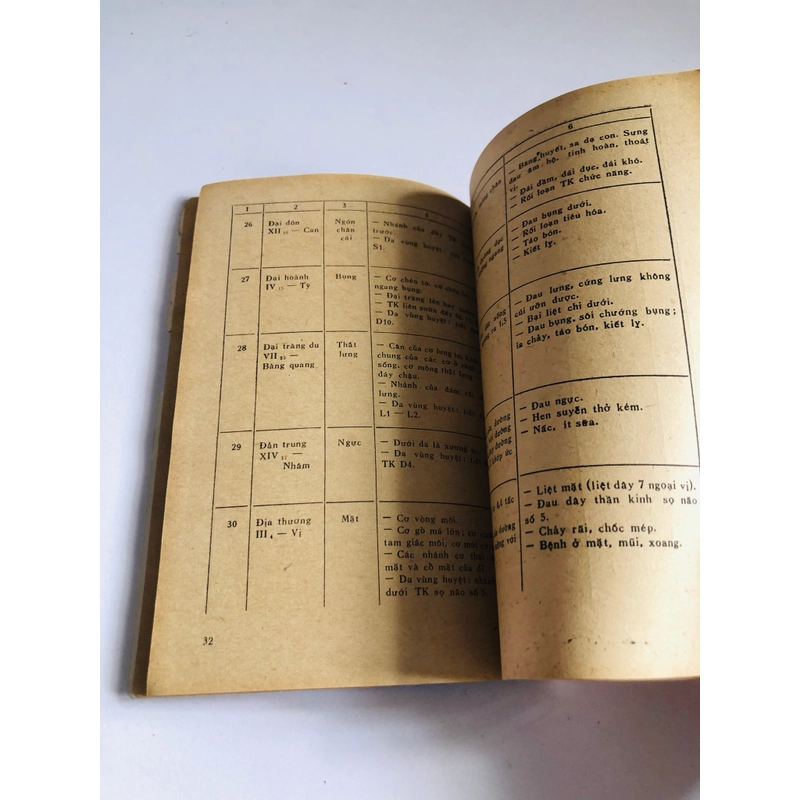 1 2 3 4
26 Đại đôn
XII 12 — Can
Ngón
chân
cái
— Nhánh của dây TK
trước.
— Da vùng huyệt:
S1.
27 Đại hoành
IV 15 — Tỳ
Bụng
— Cơ chéo to, cơ chéo
ngang bụng;
— Đại tràng lên hay
— TK liên sườn dây
— Da vùng huyệt:
D10.
28 Đại tràng du
VII — 
Bàng quang
Thắt
lưng
— Cân của cơ lưng to,
chung của các cơ ở
sống, cơ mông thắt lưng
đáy chậu.
— Nhánh của đám
lưng.
— Da vùng huyệt:
L1 — L2.
29 Đản trung
XIV 17 —
Nhâm
Ngực
— Dưới da là xương
— Da vùng huyệt:
TK D4.
30 Địa thương
III 4 — Vị
Mặt
— Cơ vòng môi.
— Cơ gò má lớn; cơ
tam giác môi, cơ mút
— Các nhánh cơ
mặt và cổ mặt của
— Da vùng huyệt:
dưới TK sọ não số 5.
32
6
chân
— Băng huyết, sa dạ con. Sưng
đau âm hộ, tinh hoàn, thoát
vị.
— Đái dầm, đái dục, đái khó.
— Rối loạn TK chức năng.
ngang
— Đau bụng dưới.
— Rối loạn tiêu hóa.
— Táo bón.
— Kiết lỵ.
ra 1,5
— Đau lưng, cứng lưng không
cúi ưỡn được.
— Bại liệt chi dưới.
— Đau bụng, sôi chướng bụng;
ỉa chảy, táo bón, kiết lỵ.
đường
đường
đường
khớp ức
— Đau ngực.
— Hen suyễn thở kém.
— Nấc, ít sữa.
0,4 tấc
đường
với
— Liệt mặt (liệt dây 7 ngoại vị).
— Đau dây thần kinh sọ não
số 5.
— Chảy rãi, chốc mép.
— Bệnh ở mặt, mũi, xoang.